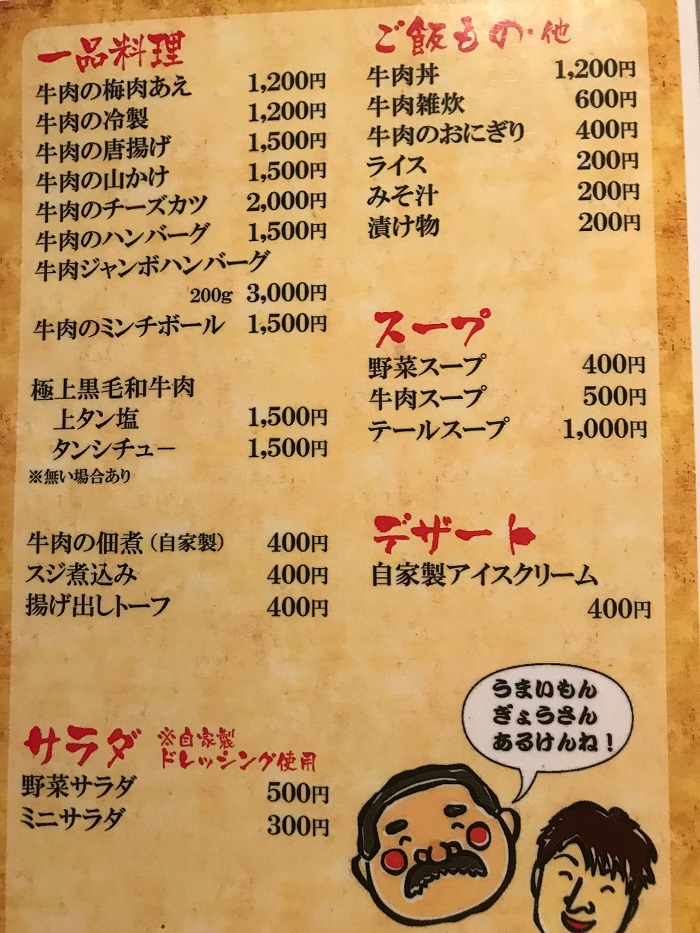 一品料理
牛肉の梅肉あえ 1,200円
牛肉の冷製 1,200円
牛肉の唐揚げ 1,500円
牛肉の山かけ 1,500円
牛肉のチーズカツ 2,000円
牛肉のハンバーグ 1,500円
牛肉ジャンボハンバーグ
200g 3,000円
牛肉のミンチボール 1,500円
極上黒毛和牛肉
上タン塩 1,500円
タンシチュー 1,500円
※無い場合あり
牛肉の佃煮(自家製) 400円
スジ煮込み 400円
揚げ出しトーフ 400円
サラダ ※自家製
ドレッシング使用
野菜サラダ 500円
ミニサラダ 300円
ご飯もの・他
牛肉丼 1,200円
牛肉雑炊 600円
牛肉のおにぎり 400円
ライス 200円
みそ汁 200円
漬け物 200円
スープ
野菜スープ 400円
牛肉スープ 500円
テールスープ 1,000円
デザート
自家製アイスクリーム
400円
うまいもん
ぎょうさん
あるけんね!